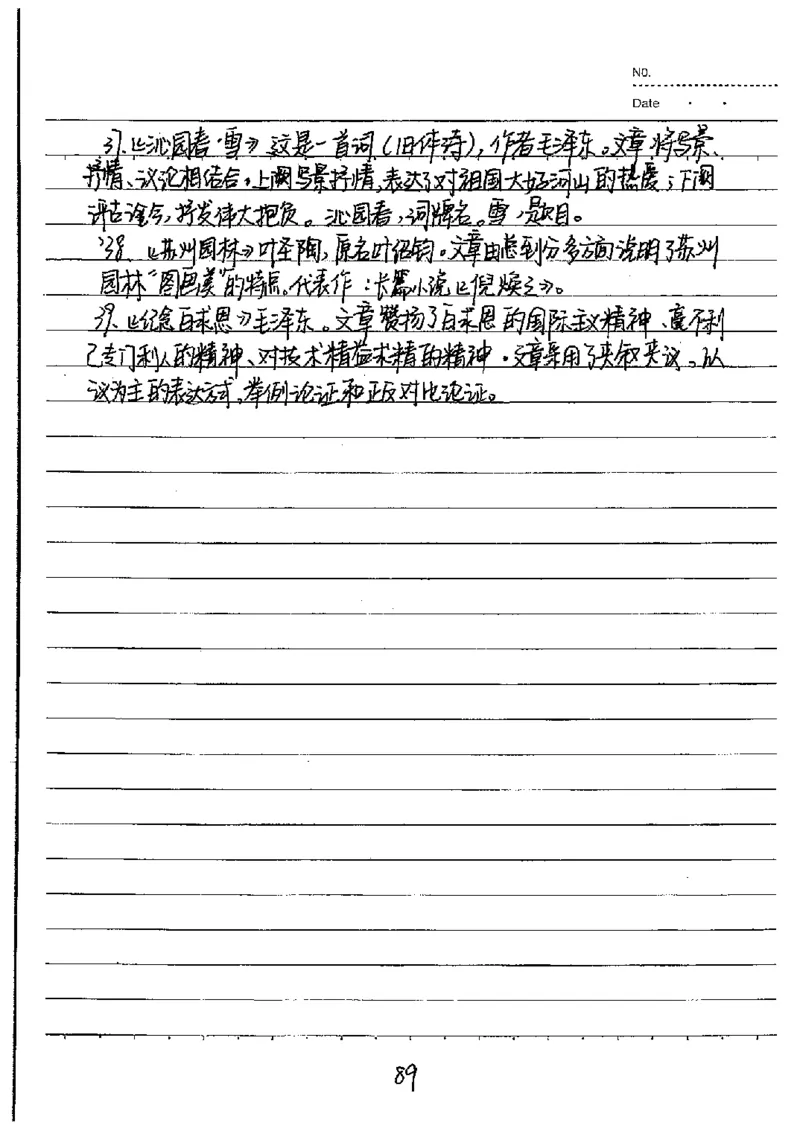 NO.
Date
37.《沁园春·雪》这是一首词(旧体诗),作者毛泽东。文章将写景、
抒情、议论相结合,上阕写景抒情,表达了对祖国大好河山的热爱;下阕
评古论今,抒发伟大抱负。沁园春,词牌名。雪,是题目。
38.《苏州园林》叶圣陶,原名叶绍钧。文章由总到分多方面说明了苏州
园林“图画美”的特点。代表作:长篇小说《倪焕之》。
39.《纪念白求恩》毛泽东。文章赞扬了白求恩的国际主义精神、毫不利
己专门利人的精神、对技术精益求精的精神。文章采用了夹叙夹议,以
议为主的表达方式,举例论证和正反对比论证。
89